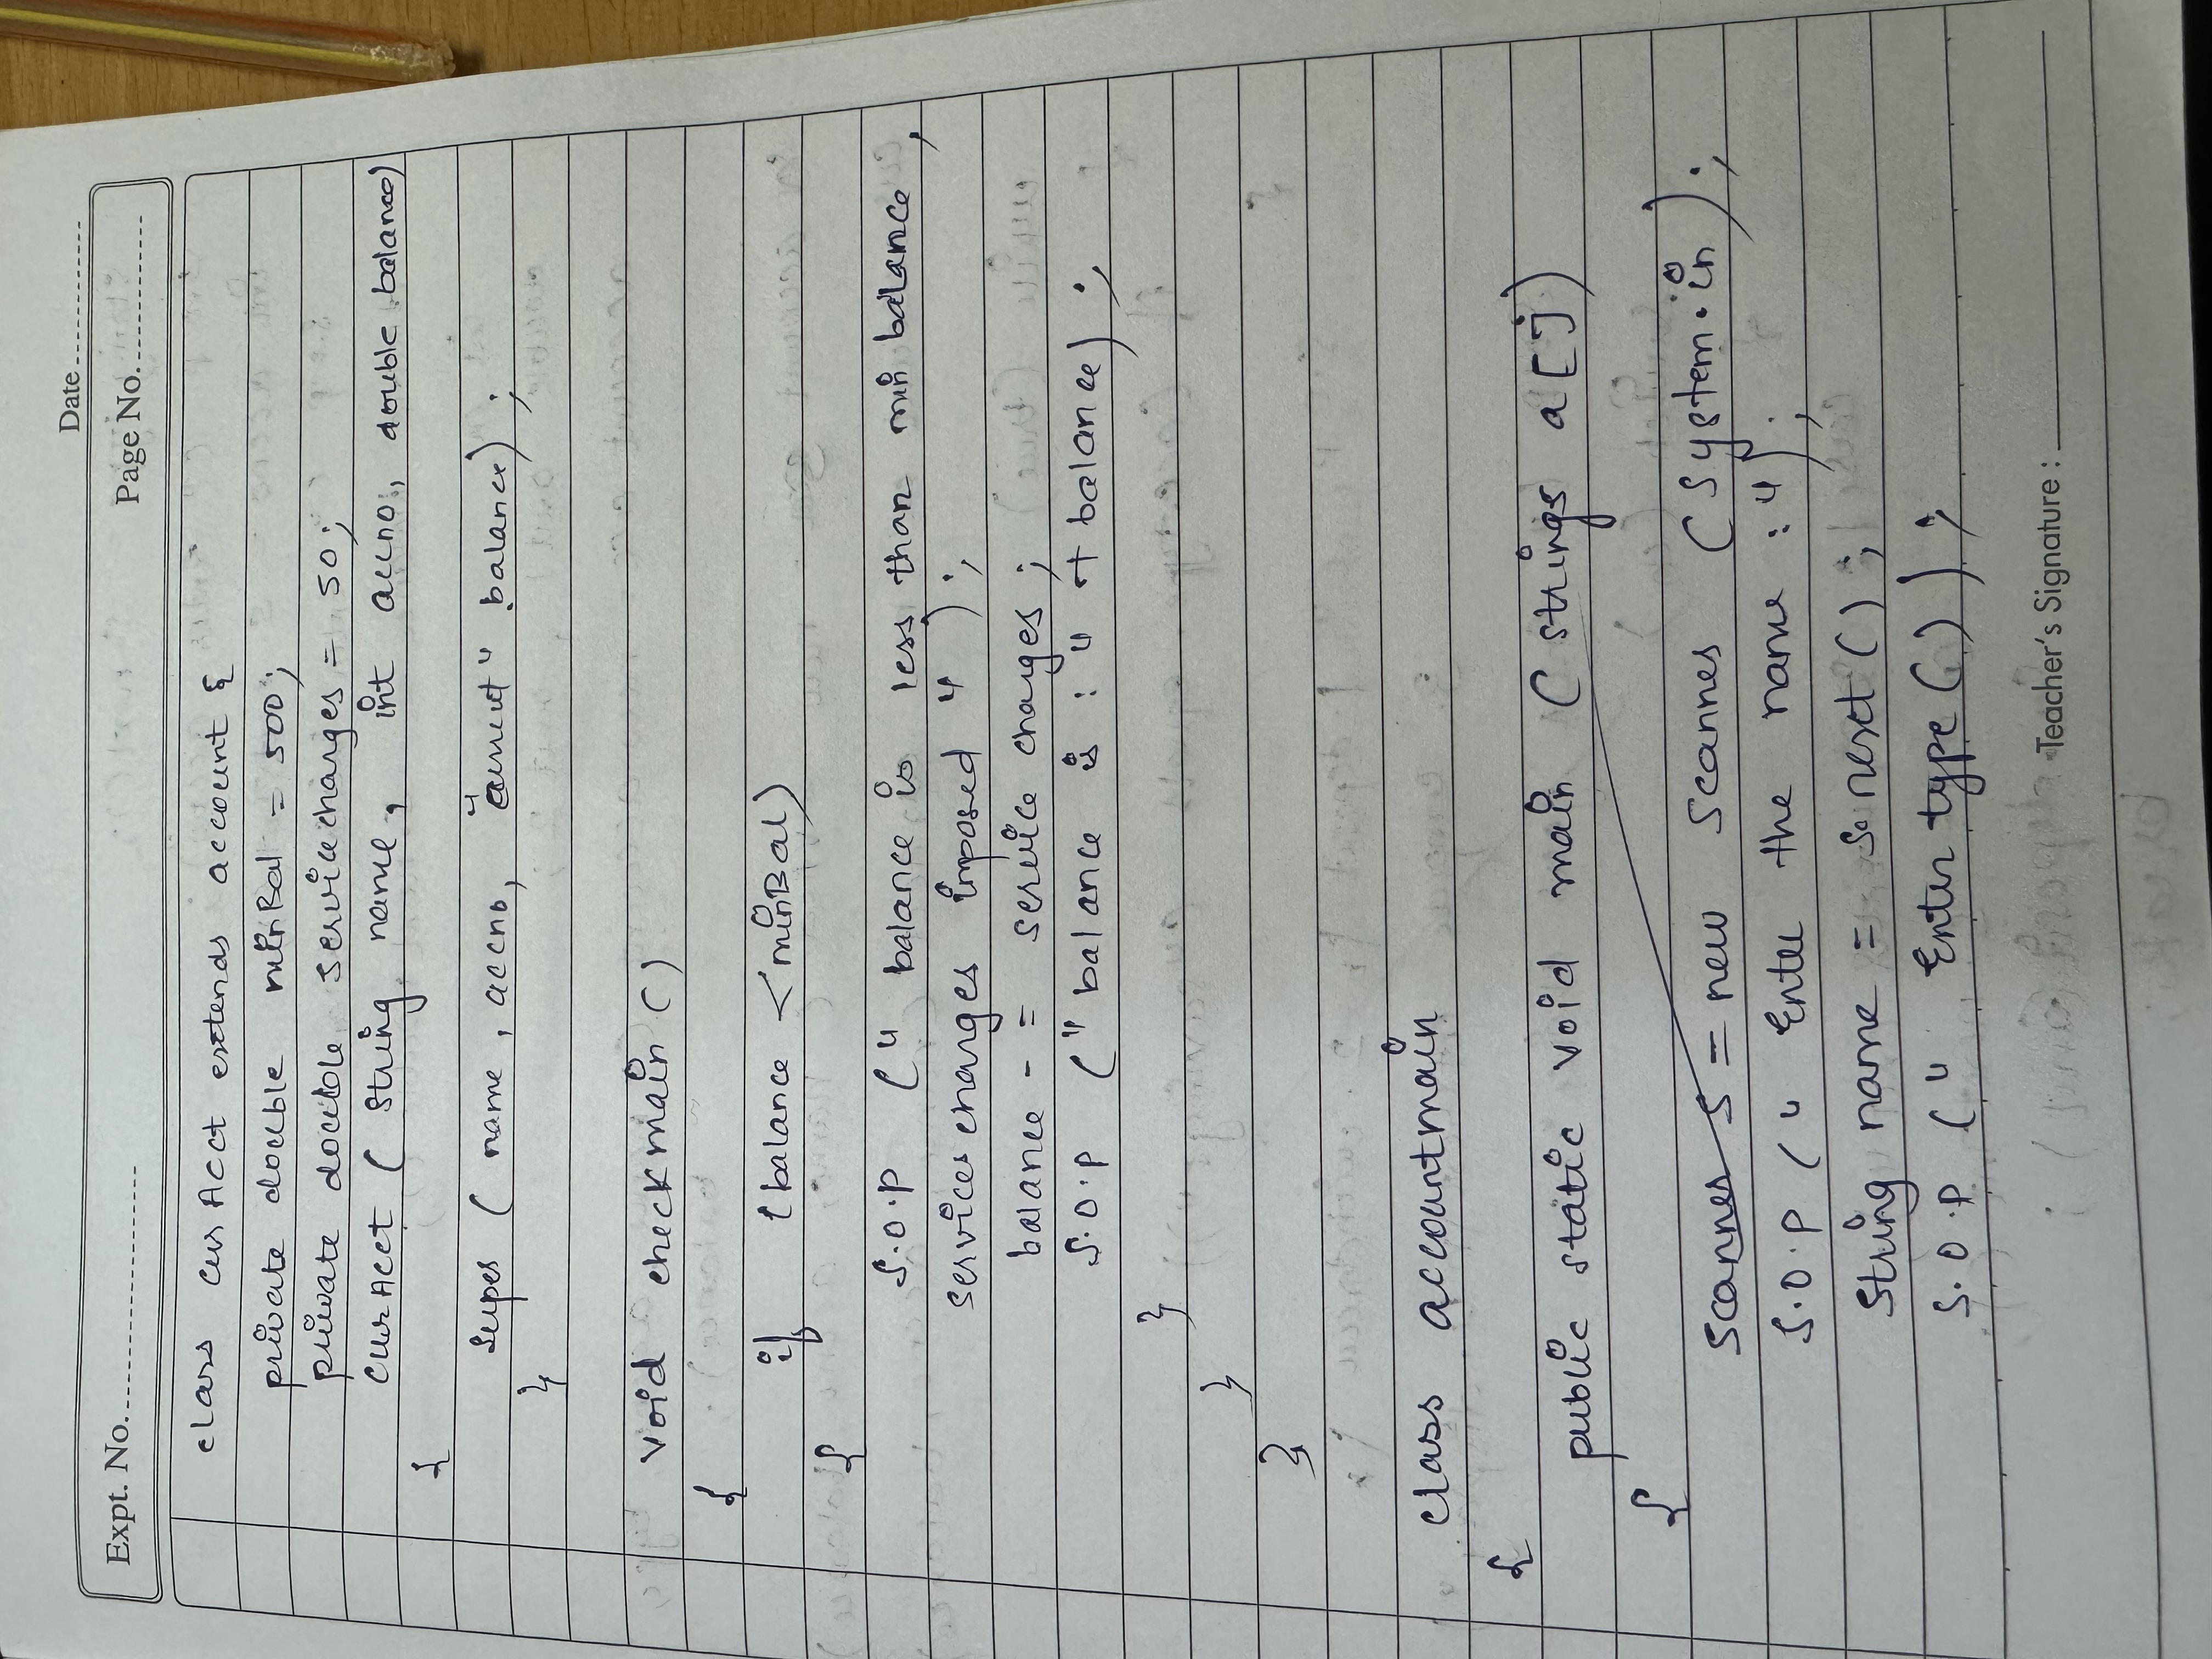 Date
Expt. No.
Page No.
class curAcct extends account {
private double minBal = 500;
private double servicecharges = 50;
curAcct ( string name, int accno, double balance)
{
super ( name , accno, "current" balance) ;
}
void checkmain ()
{
if (balance < minBal)
{
S.O.P (" balance is less than min balance ,
services charges imposed " ) ;
balance - = service charges ;
S.O.P (" balance is : " + balance) ;
}
}
}
class accountmain
{
public static void main ( strings a[])
{
scanner s = new scanner (System.in) ;
S.O.P (" Enter the name : ") ;
string name = s.next () ;
S.O.P (" Enter type () ) ;
Teacher's Signature :